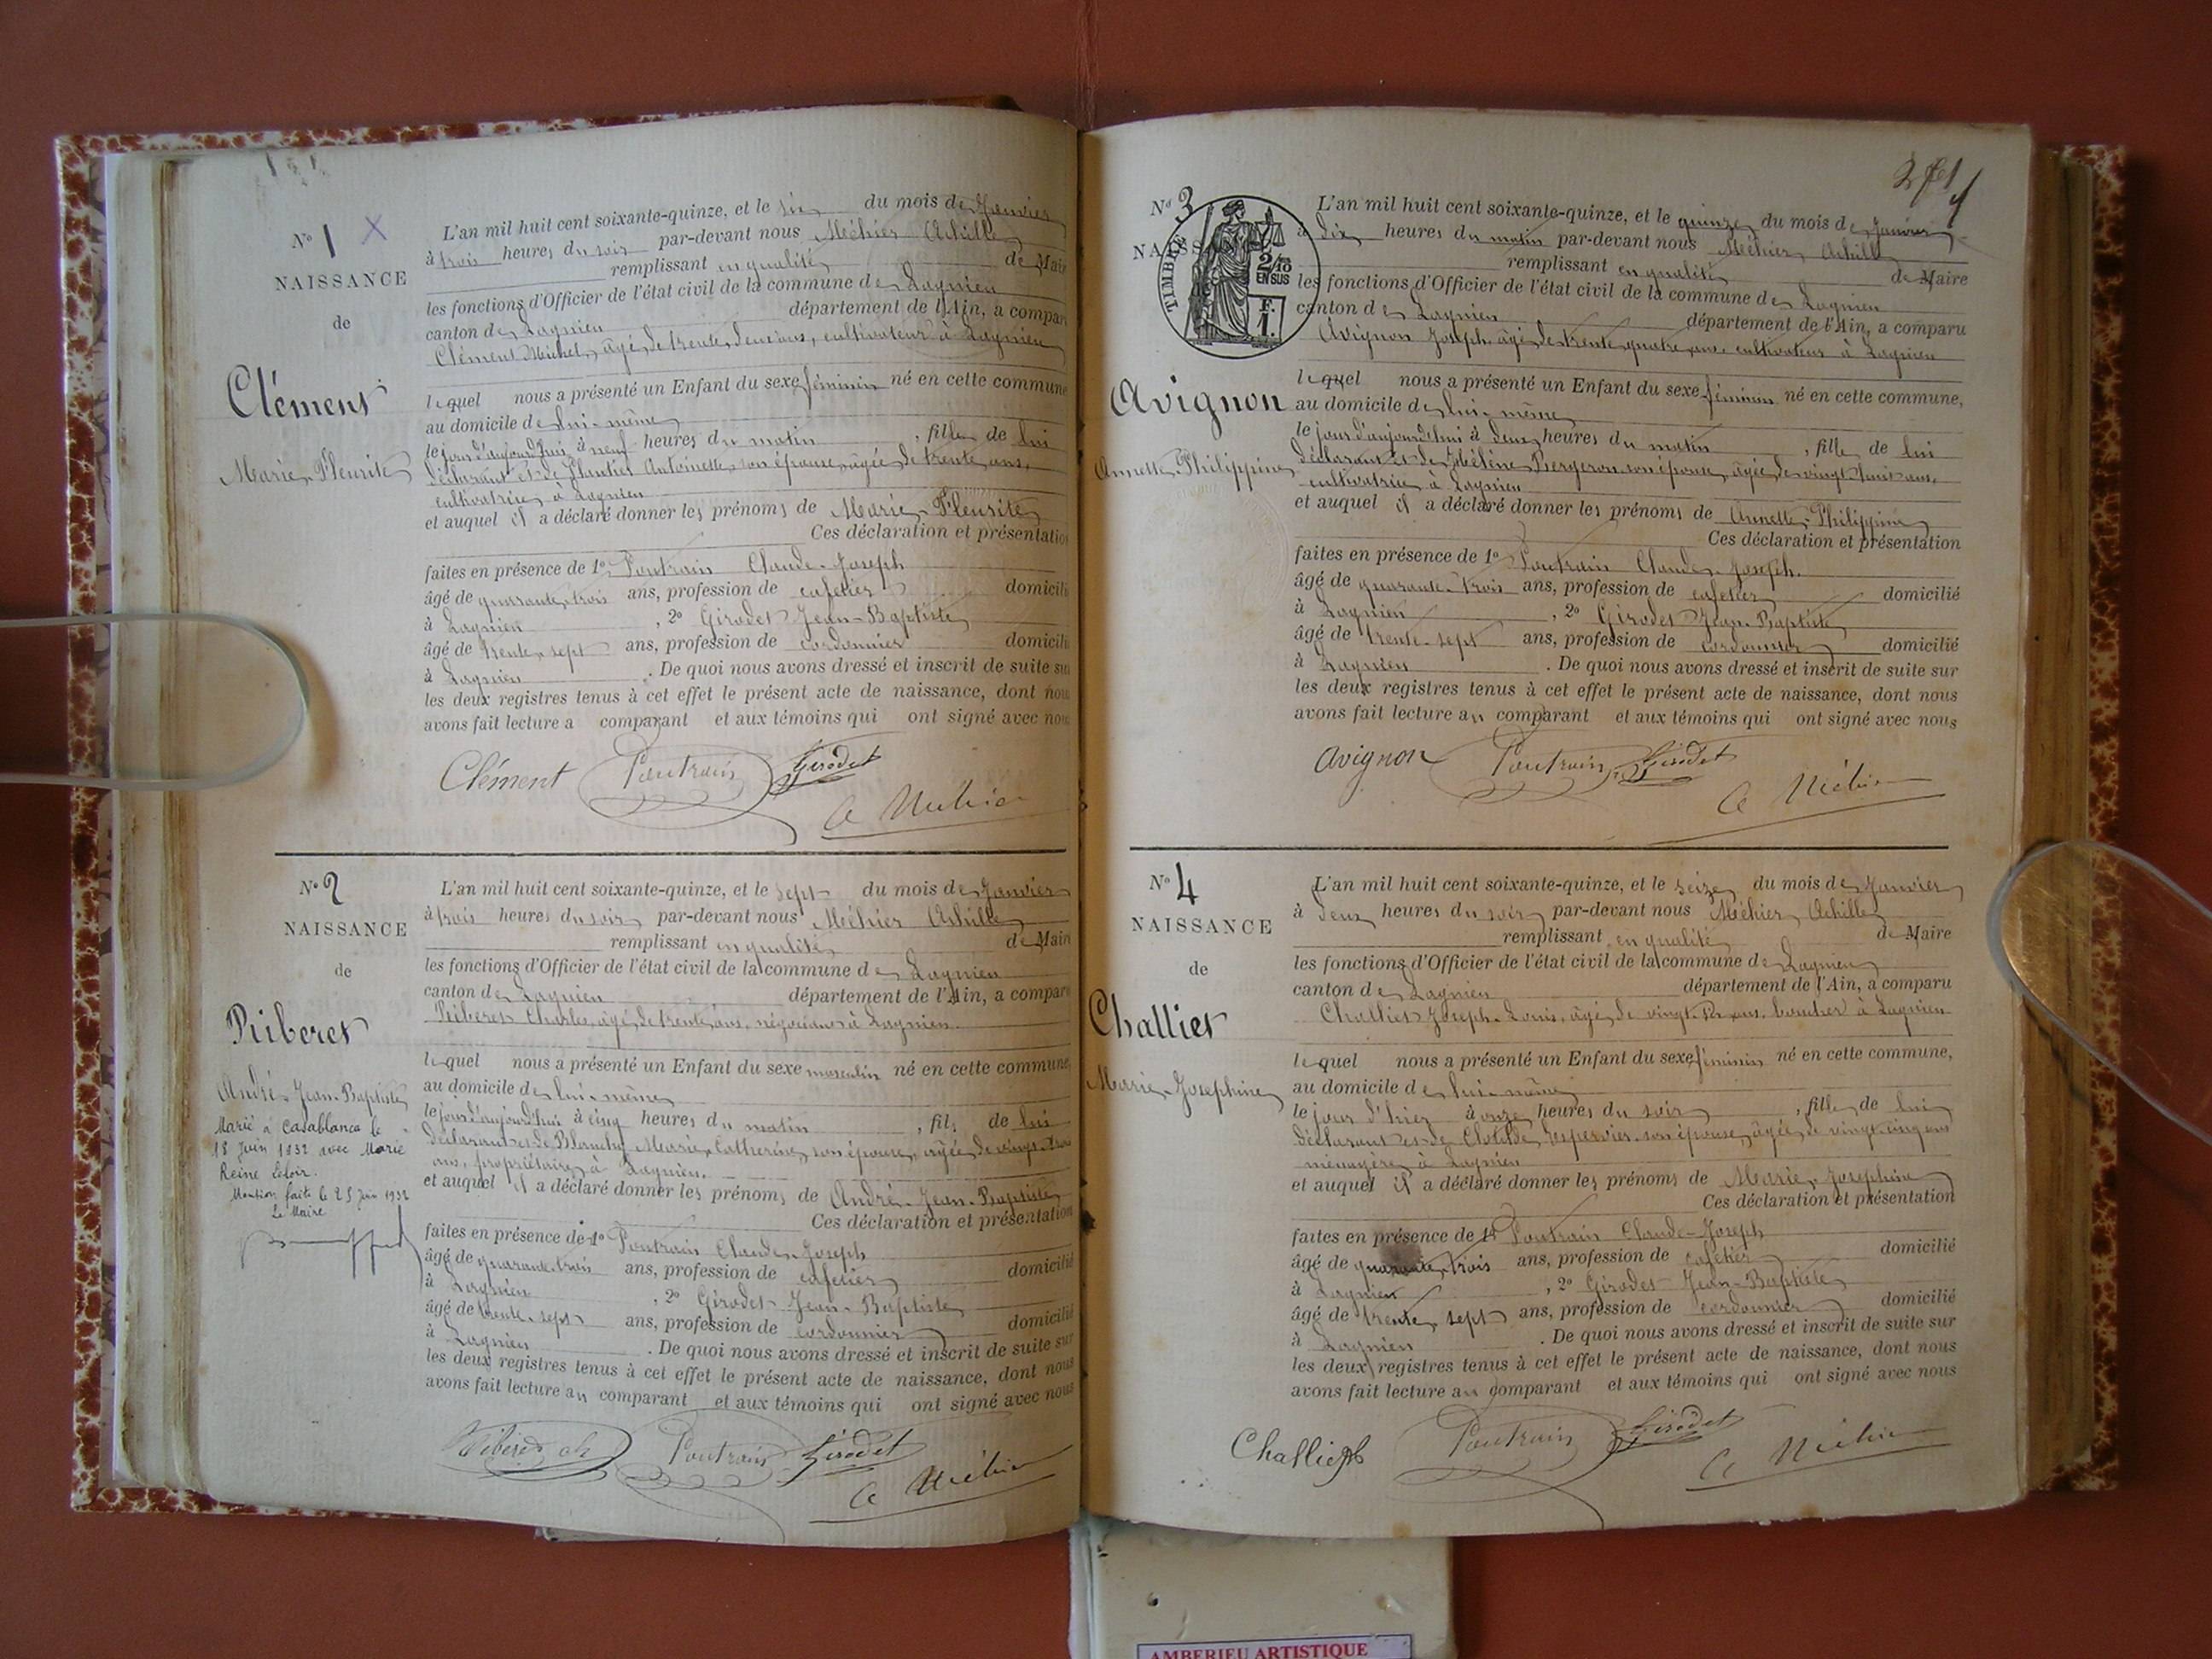 N° 1 X
NAISSANCE
de
Clément
Marie Fleurite
L'an mil huit cent soixante-quinze, et le six du mois de Janvier
à trois heures du soir par-devant nous Méhier Achille
remplissant en qualité de Maire
les fonctions d'Officier de l'état civil de la commune de Lagnieu
canton de Lagnieu département de l'Ain, a compar
Clément Michel, âgé de trente deux ans, cultivateur à Lagnieu
lequel nous a présenté un Enfant du sexe féminin né en cette commune
au domicile de lui-même
le jour d'aujourd'hui à neuf heures du matin, fille de lui
déclarant et de Antoinette, son épouse, âgée de trente ans,
cultivatrice à Lagnieu
et auquel il a déclaré donner les prénoms de Marie-Fleurite
Ces déclaration et présentation
faites en présence de 1° Poutrain Claude-Joseph
âgé de quarante-trois ans, profession de cafetier domicili
à Lagnieu, 2° Girodet Jean-Baptiste
âgé de trente-sept ans, profession de cordonnier domicili
à Lagnieu. De quoi nous avons dressé et inscrit de suite su
les deux registres tenus à cet effet le présent acte de naissance, dont nou
avons fait lecture a comparant et aux témoins qui ont signé avec nou
Clément Poutrain Girodet
A Méhier
N° 2
NAISSANCE
de
Ribéret
André-Jean-Baptiste
Marié à Casablanca le
18 Juin 1932 avec Marie
Reine
Mention faite le 25 Juin 1932
Le Maire
L'an mil huit cent soixante-quinze, et le sept du mois de Janvier
à trois heures du soir par-devant nous Méhier Achille
remplissant en qualité de Maire
les fonctions d'Officier de l'état civil de la commune de Lagnieu
canton de Lagnieu département de l'Ain, a comparu
Charles, âgé de trente ans, négociant à Lagnieu
lequel nous a présenté un Enfant du sexe masculin né en cette commune,
au domicile de lui-même
le jour d'aujourd'hui à cinq heures du matin, fils de lui
déclarant et de Marie Catherine, son épouse, âgée de vingt-trois
ans, propriétaire à Lagnieu.
et auquel il a déclaré donner les prénoms de André-Jean-Baptiste
Ces déclaration et présentation
faites en présence de 1° Poutrain Claude-Joseph
âgé de quarante-trois ans, profession de cafetier domicilié
à Lagnieu, 2° Girodet Jean-Baptiste
âgé de trente-sept ans, profession de cordonnier domicilié
à Lagnieu. De quoi nous avons dressé et inscrit de suite sur
les deux registres tenus à cet effet le présent acte de naissance, dont nous
avons fait lecture au comparant et aux témoins qui ont signé avec nous
Poutrain Girodet
A Méhier
N° 3
TIMBRE
2/10
EN SUS
F.
1.
Avignon
Annette Philippine
L'an mil huit cent soixante-quinze, et le quinze du mois de Janvier
à dix heures du matin par-devant nous Méhier Achille
remplissant en qualité de Maire
les fonctions d'Officier de l'état civil de la commune de Lagnieu
canton de Lagnieu département de l'Ain, a comparu
Avignon Joseph, âgé de trente quatre ans, cultivateur à Lagnieu
lequel nous a présenté un Enfant du sexe féminin né en cette commune,
au domicile de lui-même
le jour d'aujourd'hui à deux heures du matin, fille de lui
déclarant et de Hélène Bergeron son épouse, âgée de vingt-huit ans,
cultivatrice à Lagnieu
et auquel il a déclaré donner les prénoms de Annette-Philippine
Ces déclaration et présentation
faites en présence de 1° Poutrain Claude-Joseph.
âgé de quarante-trois ans, profession de cafetier domicilié
à Lagnieu, 2° Girodet Jean-Baptiste
âgé de trente-sept ans, profession de cordonnier domicilié
à Lagnieu. De quoi nous avons dressé et inscrit de suite sur
les deux registres tenus à cet effet le présent acte de naissance, dont nous
avons fait lecture au comparant et aux témoins qui ont signé avec nous
Avignon Poutrain Girodet
A Méhier
N° 4
NAISSANCE
de
Challier
Marie-Josephine
L'an mil huit cent soixante-quinze, et le seize du mois de Janvier
à deux heures du soir par-devant nous Méhier Achille
remplissant en qualité de Maire
les fonctions d'Officier de l'état civil de la commune de Lagnieu
canton de Lagnieu département de l'Ain, a comparu
Challier Joseph-Louis, âgé de vingt-six ans, boucher à Lagnieu
lequel nous a présenté un Enfant du sexe féminin né en cette commune,
au domicile de lui-même
le jour d'hier à onze heures du soir, fille de lui
déclarant et de Clotilde, son épouse, âgée de vingt-cinq ans
ménagère à Lagnieu
et auquel il a déclaré donner les prénoms de Marie-Josephine
Ces déclaration et présentation
faites en présence de 1° Poutrain Claude-Joseph
âgé de quarante-trois ans, profession de cafetier domicilié
à Lagnieu, 2° Girodet Jean-Baptiste
âgé de trente-sept ans, profession de cordonnier domicilié
à Lagnieu. De quoi nous avons dressé et inscrit de suite sur
les deux registres tenus à cet effet le présent acte de naissance, dont nous
avons fait lecture au comparant et aux témoins qui ont signé avec nous
Challier Poutrain Girodet
A Méhier
AMBERIEU ARTISTIQUE